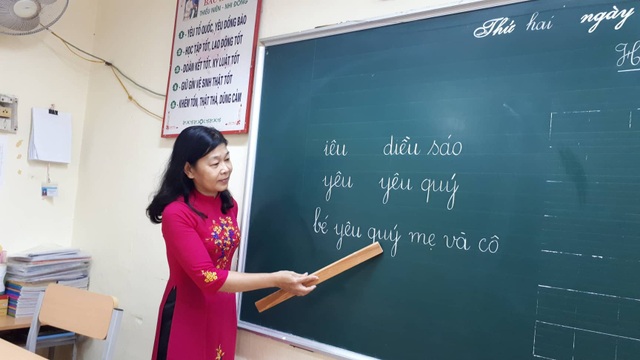 THIẾU NIÊN - NHI ĐỒNG
1 - YÊU TỔ QUỐC, YÊU ĐỒNG BÀO
2 - HỌC TẬP TỐT, LAO ĐỘNG TỐT
3 - ĐOÀN KẾT TỐT, KỶ LUẬT TỐT
4 - GIỮ GÌN VỆ SINH THẬT TỐT
5 - KHIÊM TỐN, THẬT THÀ, DŨNG CẢM
Thứ hai ngày
H
iêu diều sáo
yêu yêu quý
bé yêu quý mẹ và cô